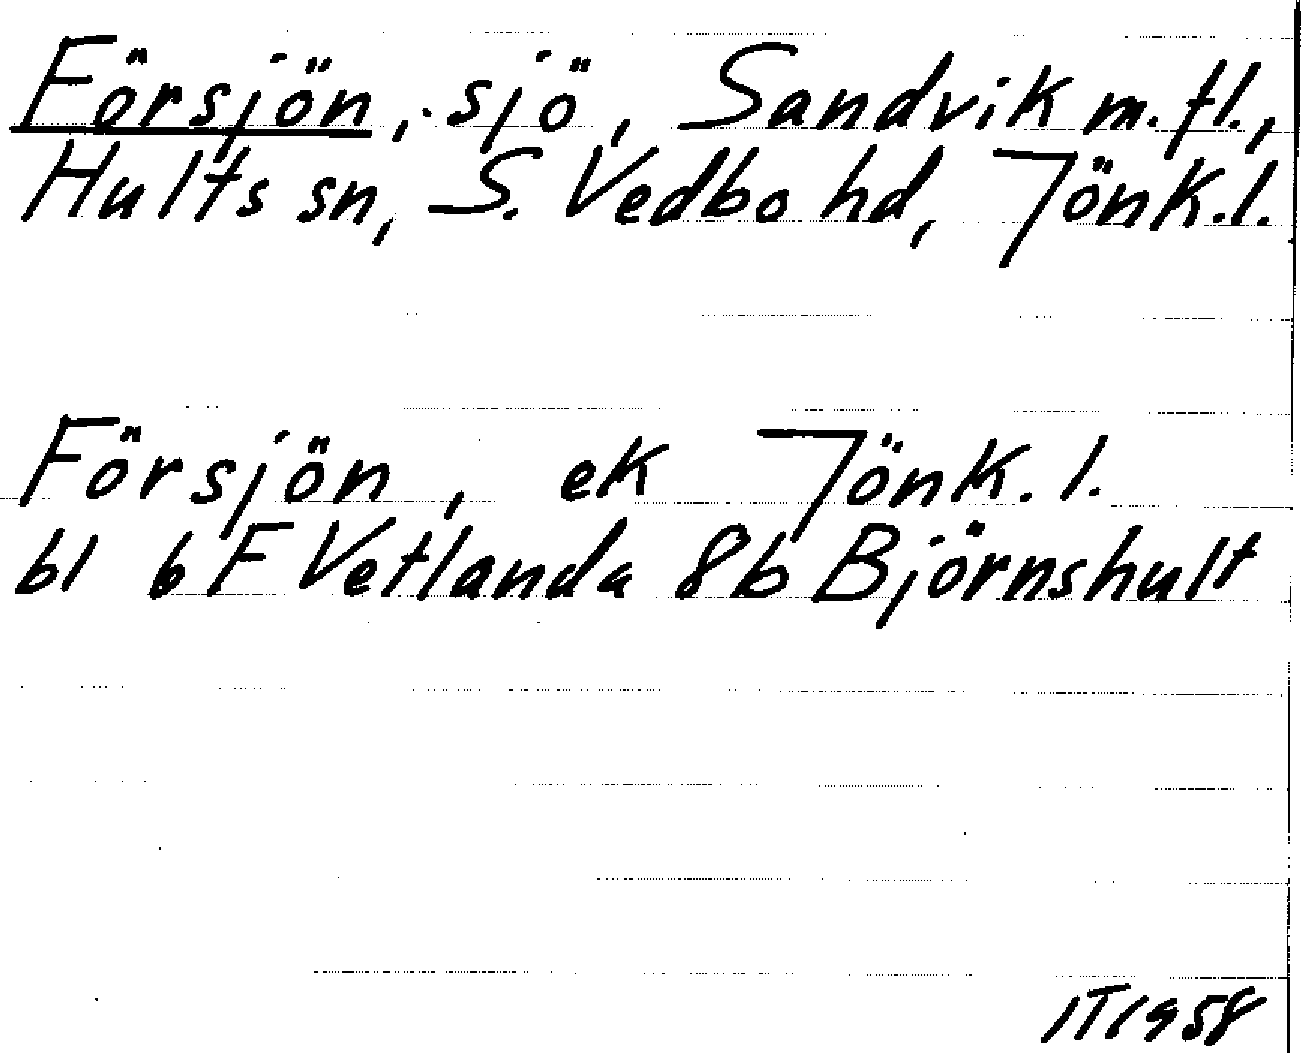 Försjön, sjö, Sandvik m. fl.,
Hults sn, S. Vedbo hd, Jönk. l.
Försjön, ek Jönk. l.
bl 6 F Vetlanda 8b Björnshult
IT 1958